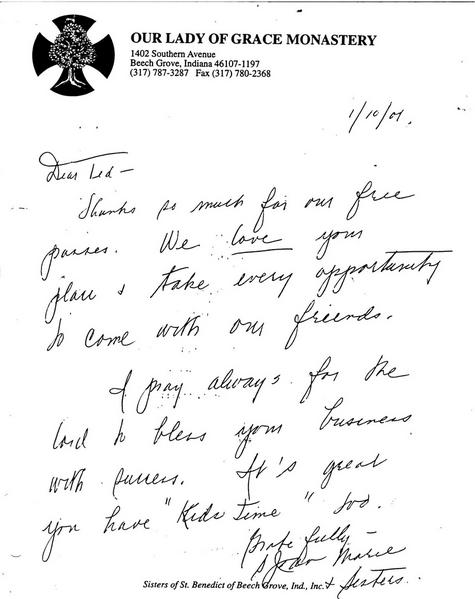 OUR LADY OF GRACE MONASTERY
1402 Southern Avenue
Beech Grove, Indiana 46107-1197
(317) 787-3287 Fax (317) 780-2368
1/10/01.
Dear Ted –
Thanks so much for our free
passes. We love your
place & take every opportunity
to come with our friends.
I pray always for the
Lord to bless your business
with success. It's great
you have "Kids Time" too.
Gratefully –
S. Jean Marie
& Sisters.
Sisters of St. Benedict of Beech Grove, Ind., Inc.